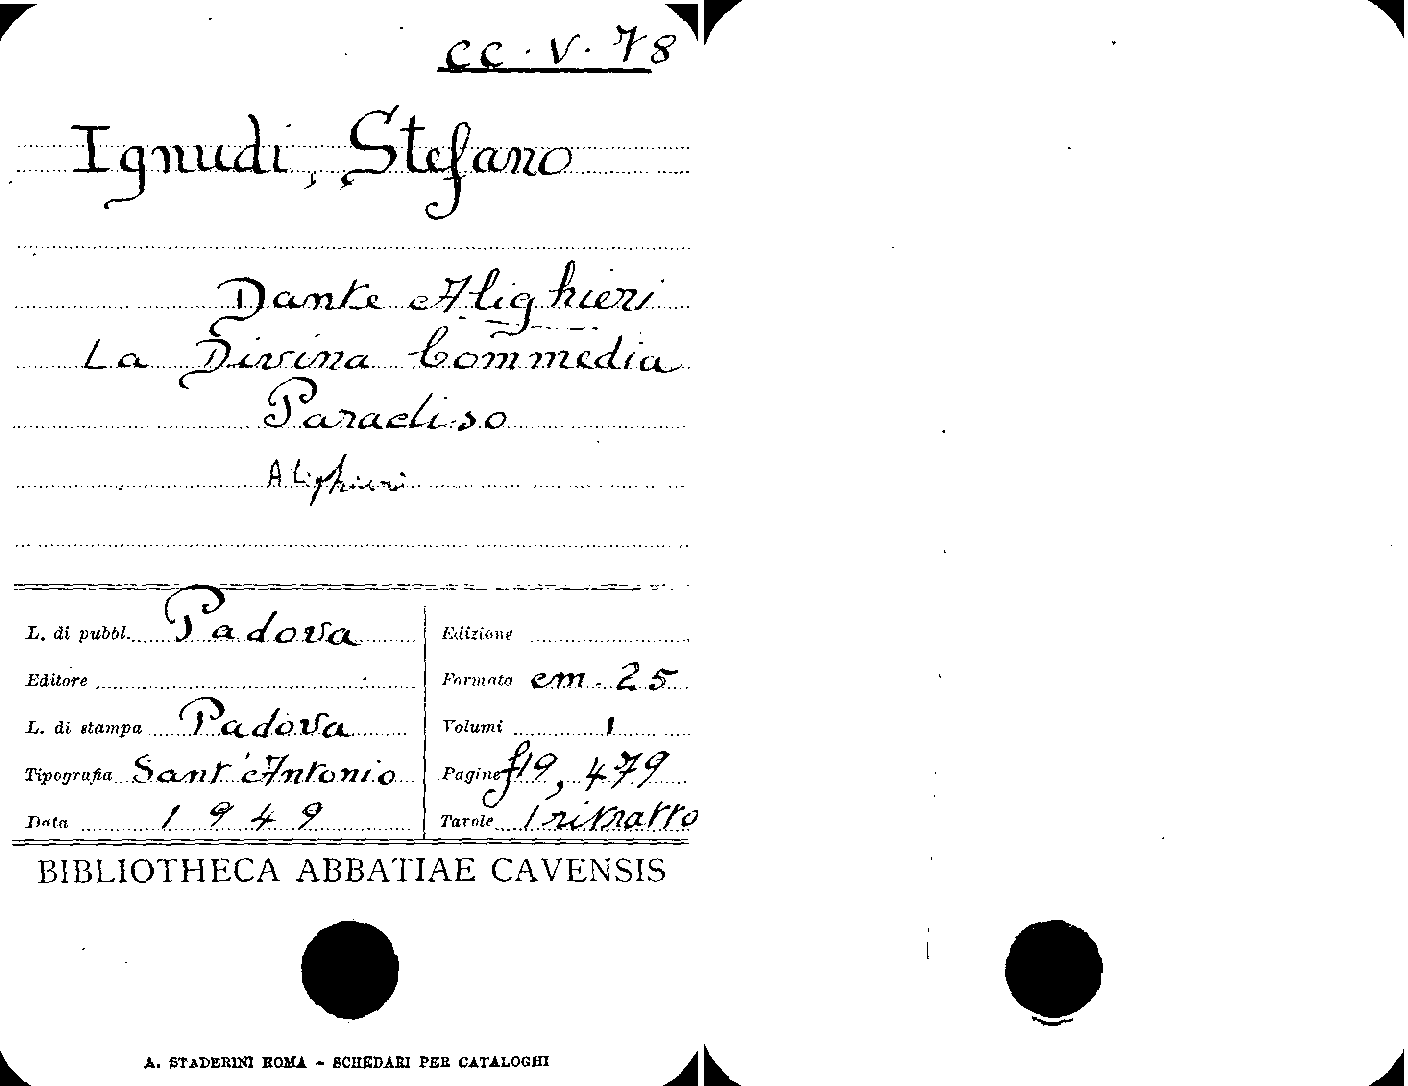 CC. V. 78
Ignudi, Stefano
Dante Alighieri
La Divina Commedia
Paradiso
Alighieri
L. di pubbl. Padova
Editore
L. di stampa Padova
Tipografia Sant'Antonio
Data 1949
Edizione
Formato cm. 25
Volumi 1
Pagine f19, 479
Tavole 1 ritratto
BIBLIOTHECA ABBATIAE CAVENSIS
A. STADERINI ROMA - SCHEDARI PER CATALOGHI